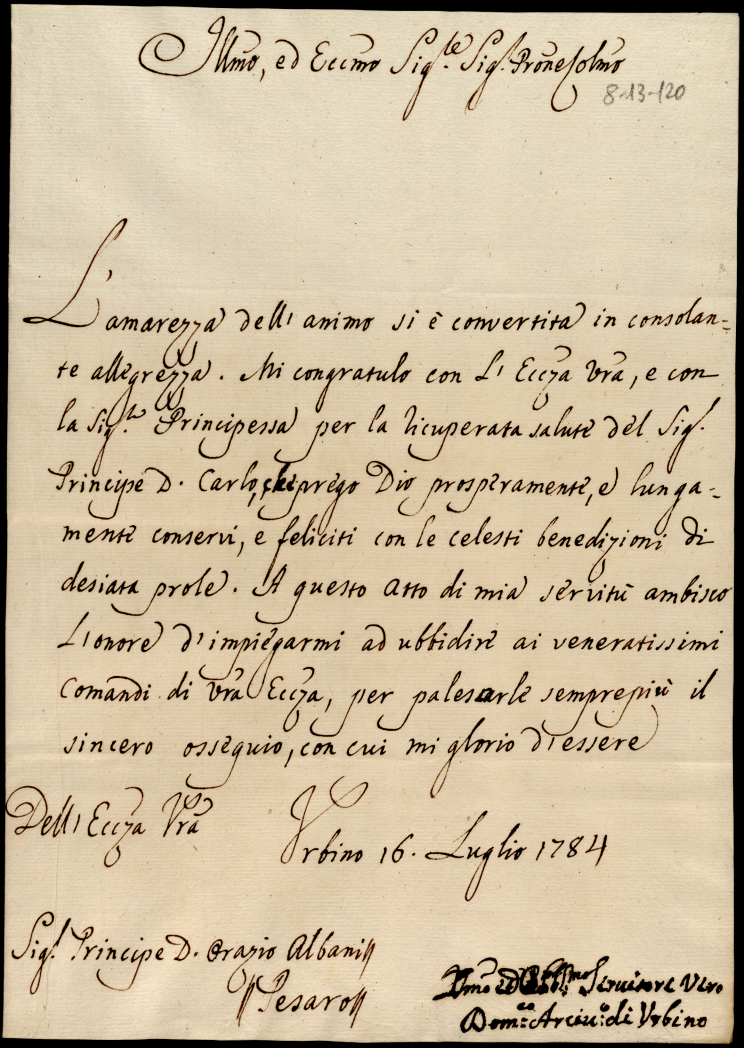 Illmo, ed Eccmo Sig.re Sig.r Prone Colmo
8-13-120
L'amarezza dell'animo si è convertita in consolan-
te allegrezza. Mi congratulo con L'Eccza Vra, e con
la Sig.ra Principessa per la ricuperata salute del Sig.r
Principe D. Carlo, che prego Dio prosperamente, e lunga-
mente conservi, e feliciti con le celesti benedizioni di
desiata prole. A questo atto di mia servitù ambisco
L'onore d'impiegarmi ad ubbidire ai veneratissimi
Comandi di Vra Eccza, per palesarle semprepiù il
sincero ossequio, con cui mi glorio d'essere
Dell'Eccza Vra
Urbino 16. Luglio 1784
Sig.r Principe D. Orazio Albani//
//Pesaro//
Umo ed Obblmo Servitore Vero
Dom:co Arciv:o di Urbino